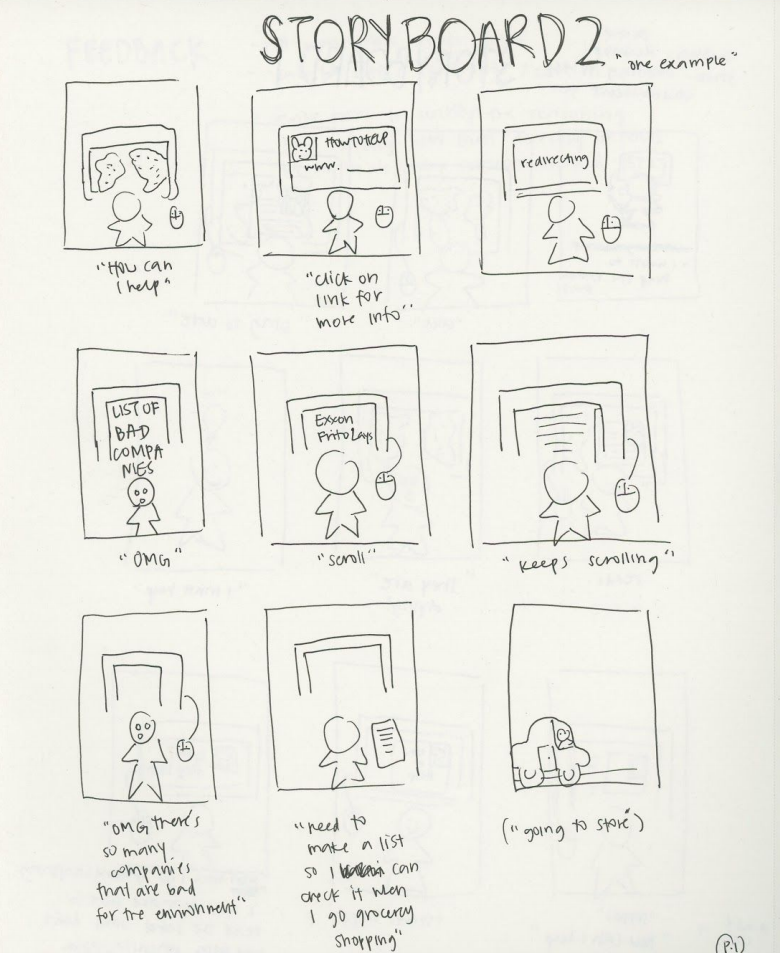 STORYBOARD 2
"one example"
HOW TO HELP
www.
redirecting
"How can
I help"
"click on
link for
more info"
LIST OF
BAD
COMPA
NIES
Exxon
Frito Lays
"OMG"
"scroll"
"keeps scrolling"
"OMG there's
so many
companies
that are bad
for the environment"
"need to
make a list
so I can
check it when
I go grocery
shopping"
("going to store")
P.1